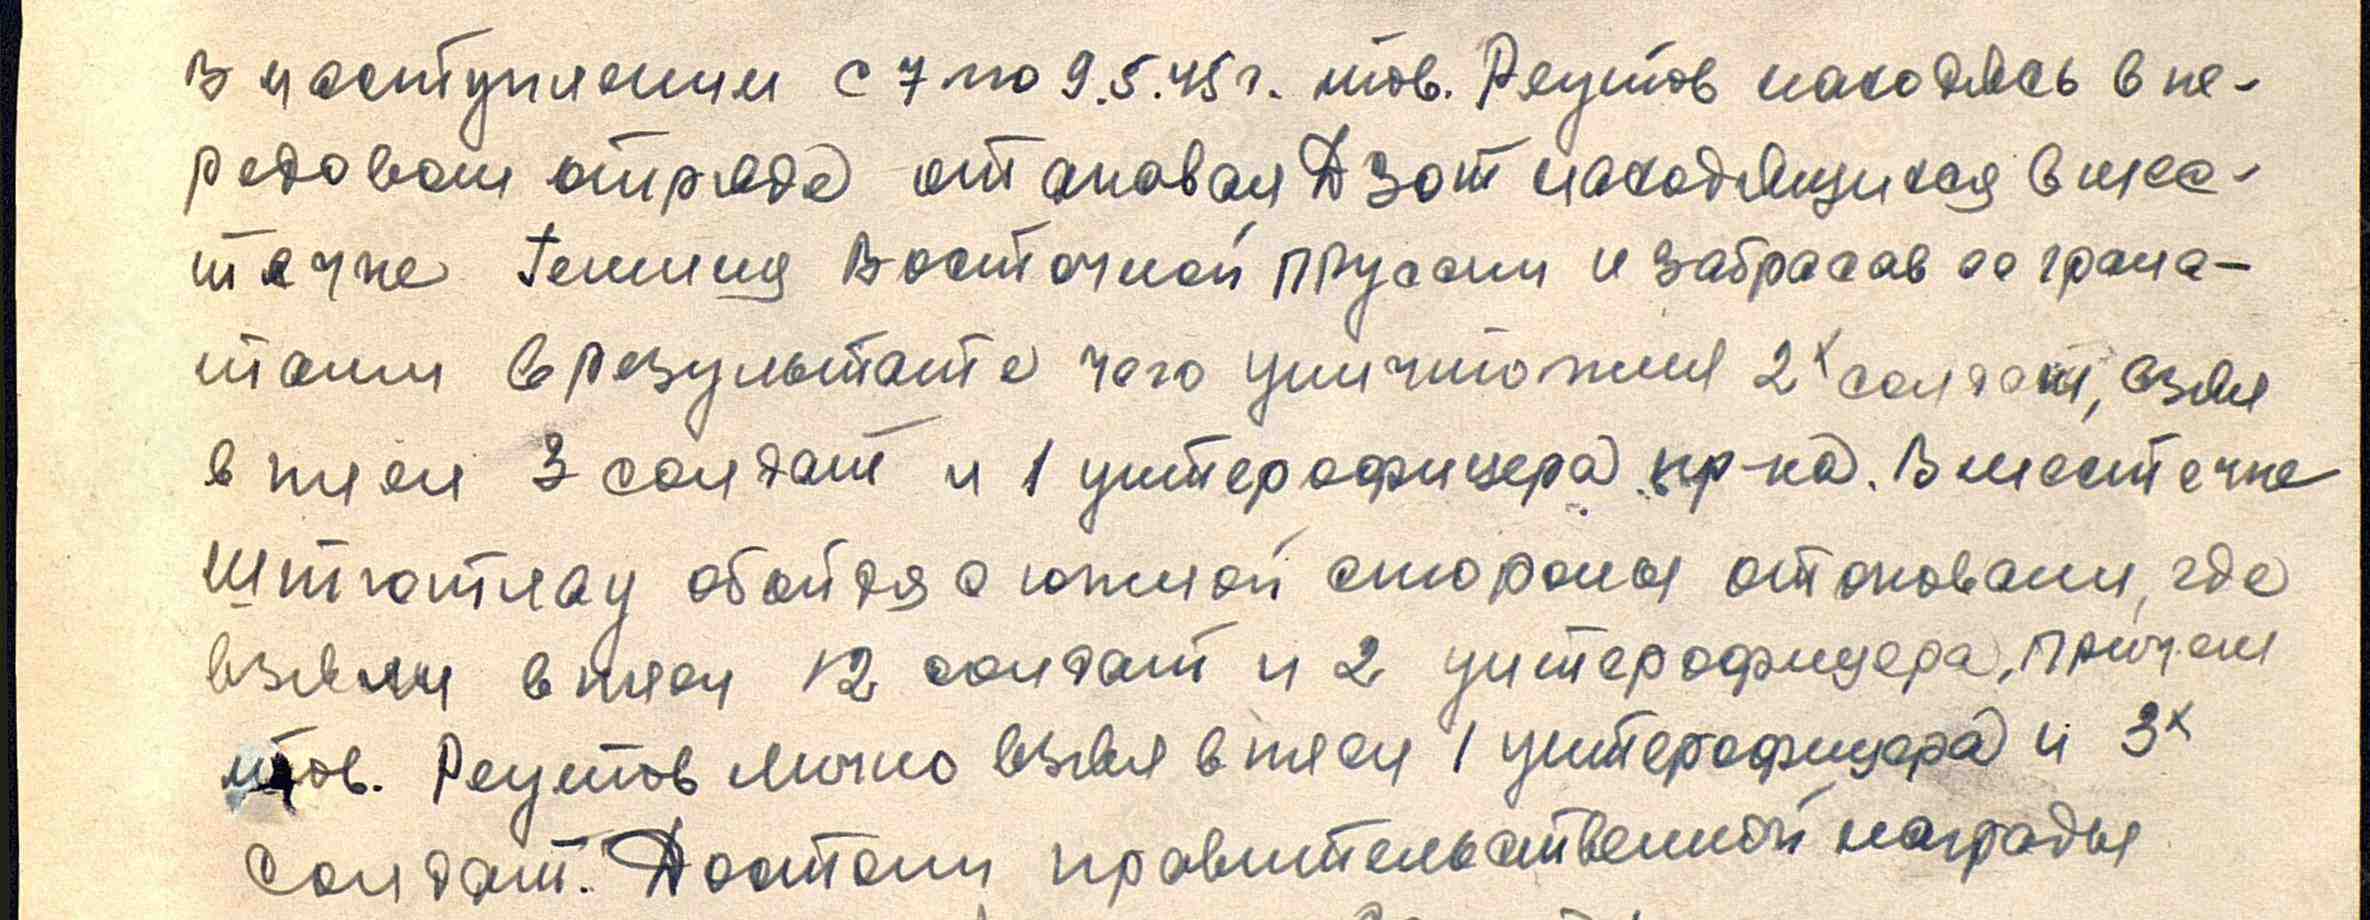 В наступлении с 7 по 9.5.45 г. тов. Реутов находясь в пе-
редовом отряде отаковал Дзот находящийся в мес-
течке Восточной Пруссии и забрасав ее грана-
тами в результате чего уничтожил 2х солдат, взял
в плен 3 солдат и 1 унтерофицера пр-ка. В местечке
Штютлау обойдя с южной стороны отоковали, где
взяли в плен 12 солдат и 2 унтерофицера, причем
тов. Реутов лично взял в плен 1 унтерофицера и 3х
солдат. Достоин правительственной награды